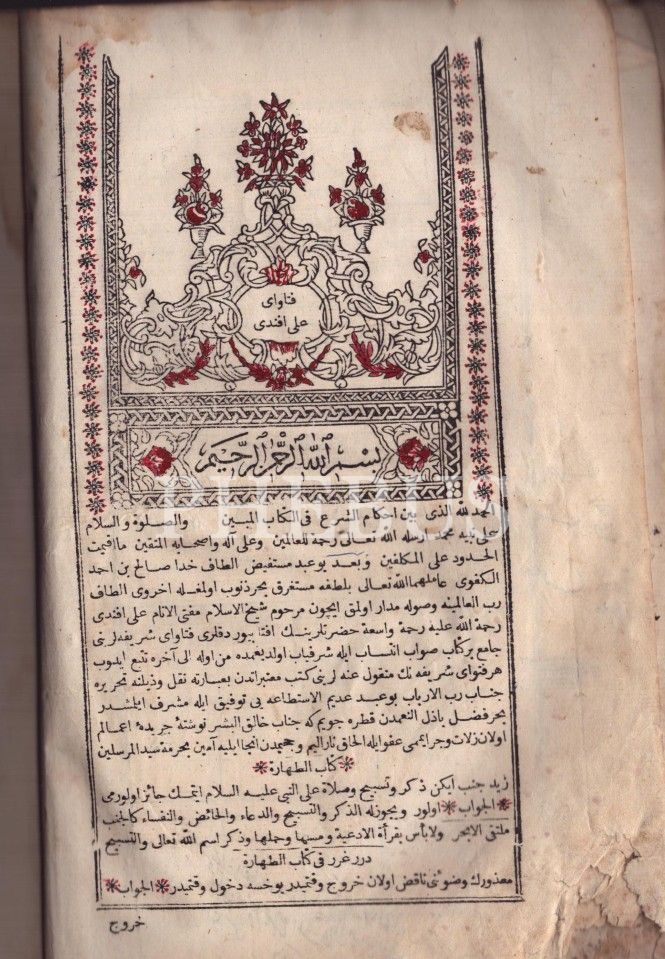 فتاوای
علی افندی
بسم الله الرحمن الرحيم
PHEBUS
الحمد لله الذی بين احكام الشرع فی الكتاب المبين والصلوة والسلام
علی نبيه محمد ارسله الله تعالی رحمة للعالمين وعلی آله واصحابه المتقين ما اقيمت
الحدود علی المكلفين وبعد بو عبد مستفيض الطاف خدا صالح بن احمد
الكفوی عاملهما الله تعالی بلطفه مستغرق بحر ذنوب اولمغله اخروی الطاف
رب العالمينه وصوله مدار اولمق ايچون مرحوم شيخ الاسلام مفتی الانام علی افندی
رحمة الله عليه رحمة واسعة حضرتلرينك افتا بيوردقلری فتاوای شريفه لرينی
جامع بر كتاب صواب انتساب ايله شرفياب اولديغمده من اوله الی آخره تتبع ايدوب
هر فتوای شريفه نك منقول عنه لرينی كتب معتبراتدن بعبارته نقل وذيلنه تحريره
جناب رب الارباب بو عبد عديم الاستطاعه يی توفيق ايله مشرف ايلمشدر
بحر فضل باذل النعمدن قطره جويم كه جناب خالق البشر نوشتۀ جريدۀ اعمالم
اولان زلات وجرايممی عفو ايله الحاق نار اليم وجحيمدن انجا ايليه آمين بحرمة سيد المرسلين
كتاب الطهارة
زيد جنب ايكن ذكر وتسبيح وصلاة علی النبی عليه السلام ايتمك جائز اولورمی
الجواب اولور ويجوز له الذكر والتسبيح والدعاء والحائض والنفساء كالجنب
ملتقی الابحر ولا بأس بقرأة الادعية ومسها وحملها وذكر اسم الله تعالی والتسبيح
درر غرر فی كتاب الطهارة
معذورك وضوئنی ناقض اولان خروج وقتميدر يوخسه دخول وقتميدر الجواب
خروج